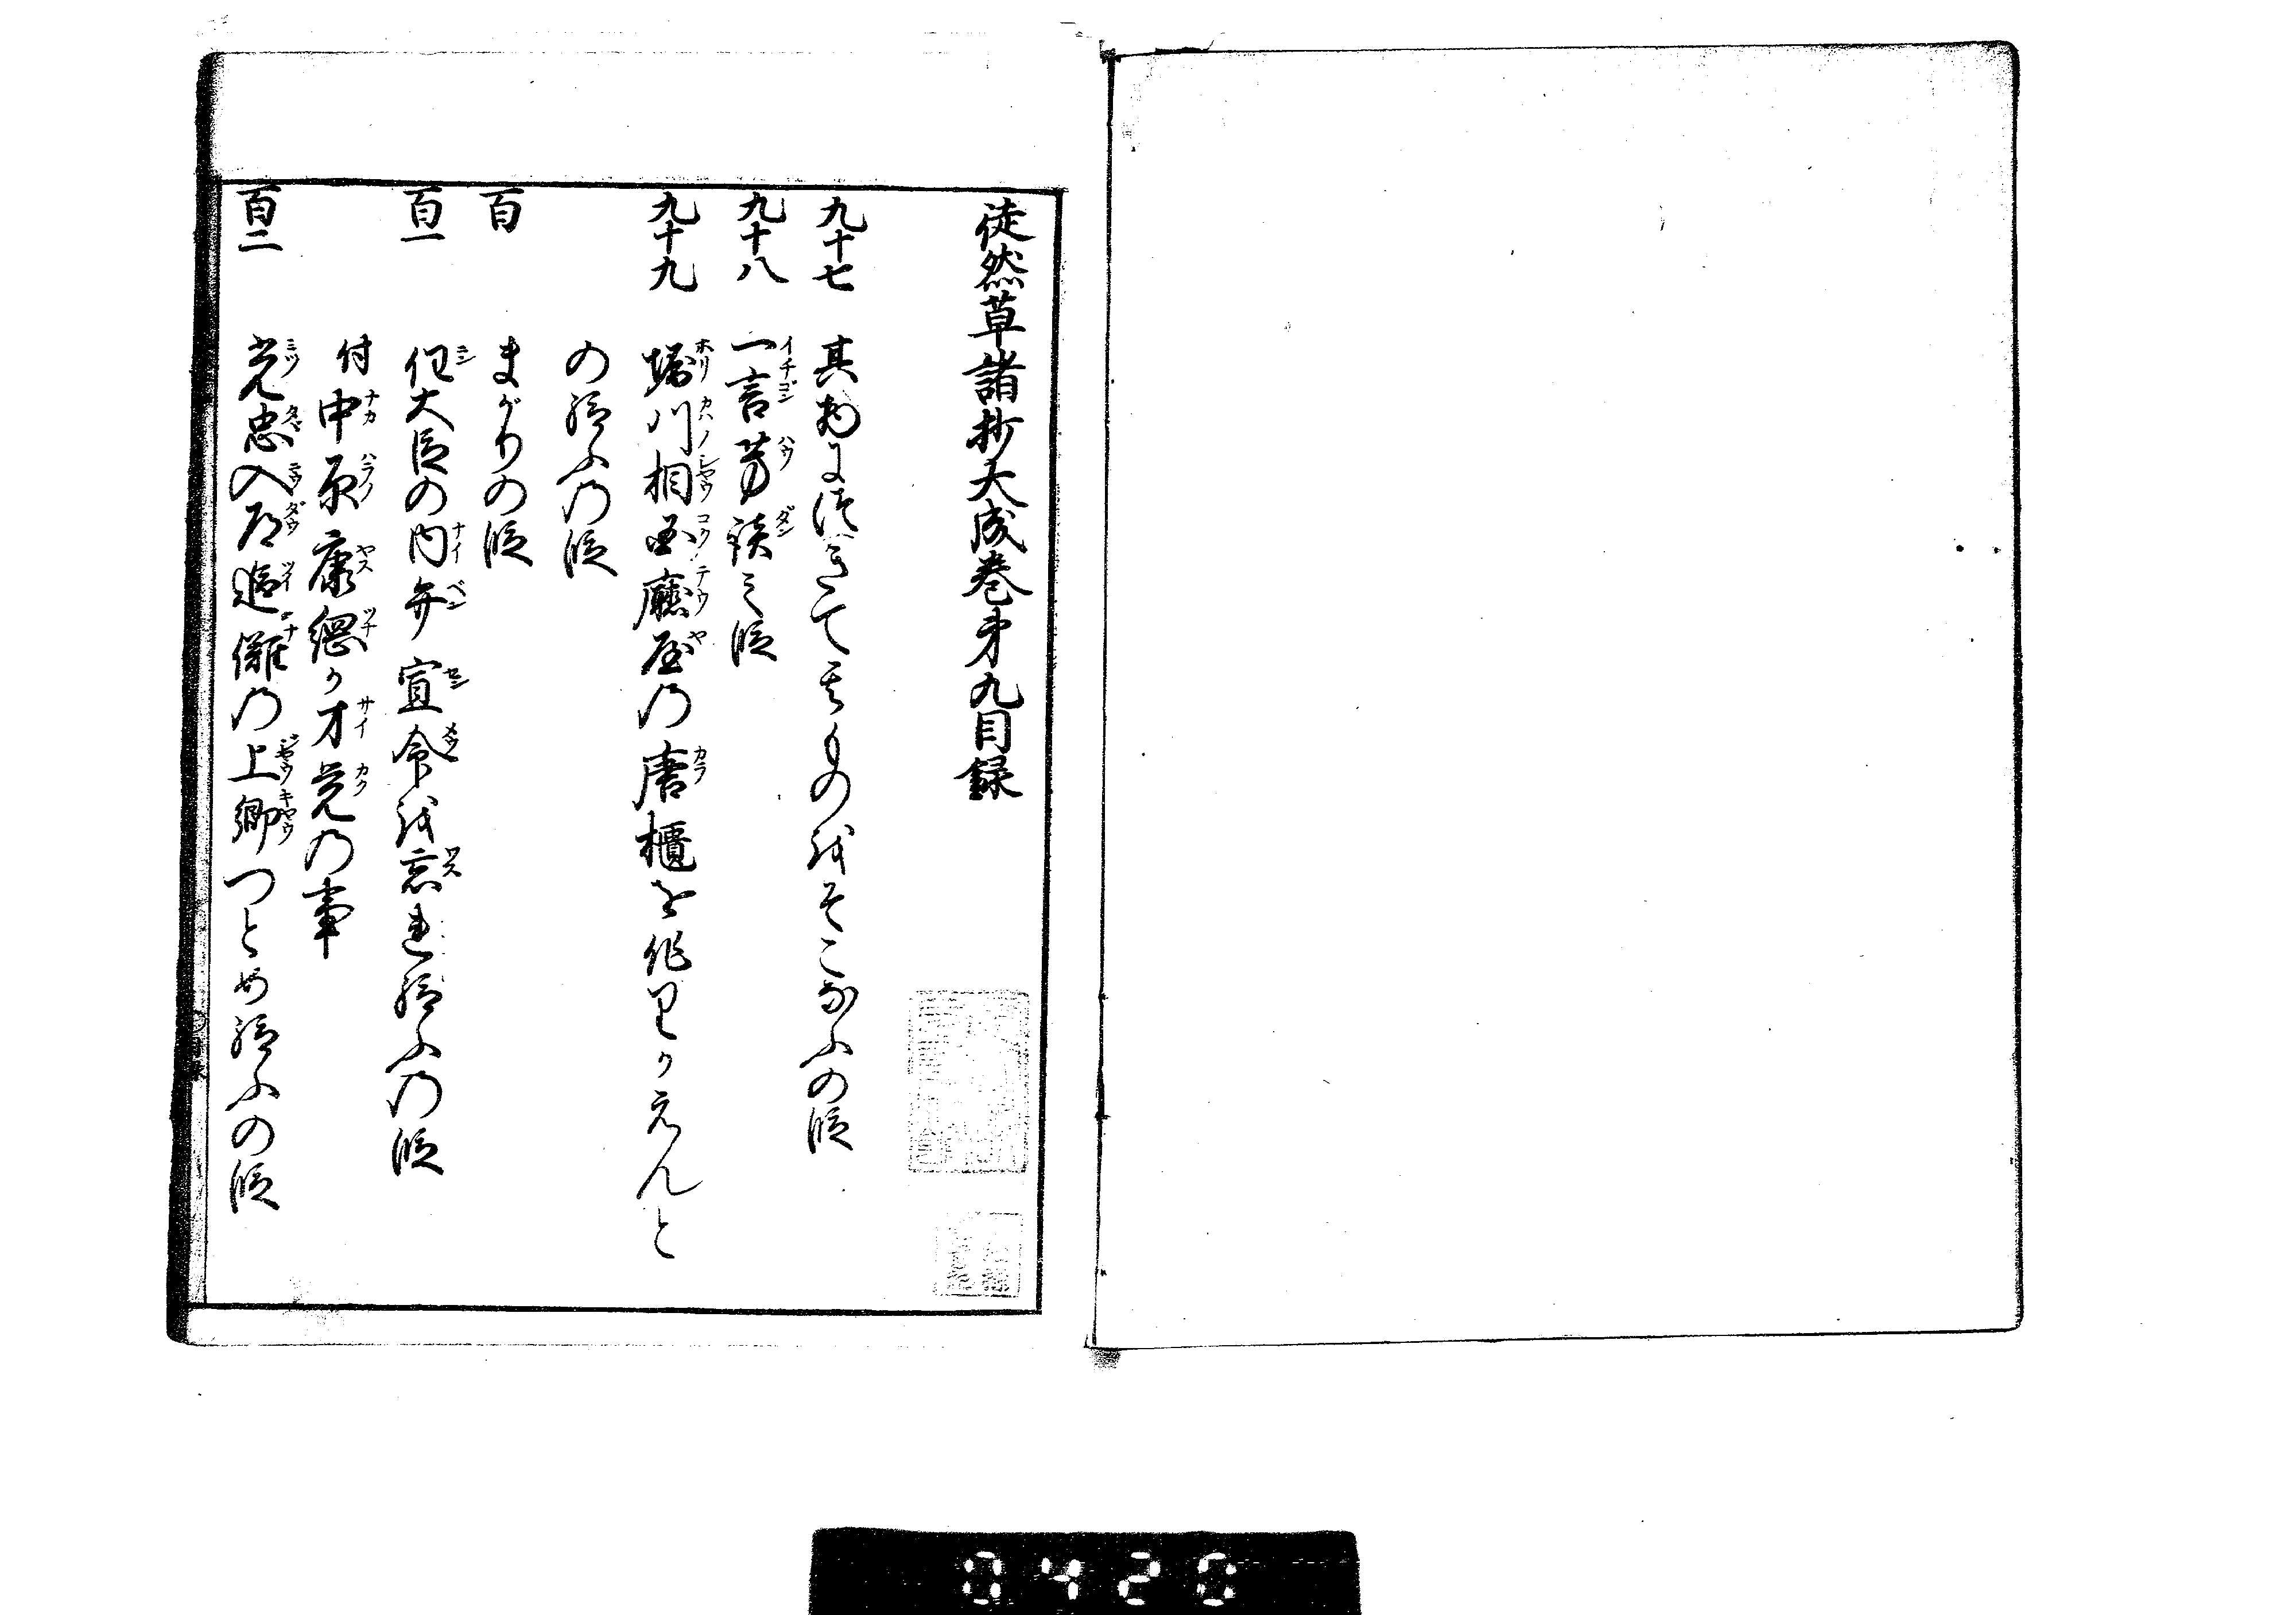 徒然草諸抄大成巻第九目録
九十七 其物につきて其ものをそこなふの段
九十八 一言芳談之段
九十九 堀川相国廳屋の唐櫃を作りかえんと
の給ふの段
百 まがりの段
百一 任大臣の内弁宣命を忘れ給ふの段
付中原康綱か才覚の事
百二 光忠入道追儺の上卿つとめ給ふの段
0420